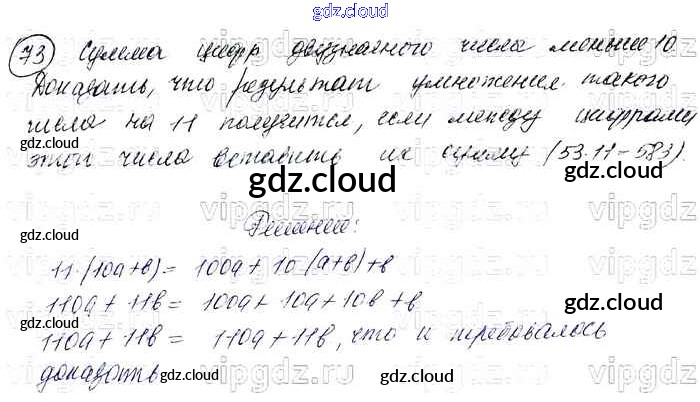 gdz.cloud
73 Сумма цифр двузначного числа меньше 10.
Доказать, что результат умножения такого
числа на 11 получится, если между цифрами
этого числа вставить их сумму (53·11-583).
gdz.cloud
gdz.cloud
gdz.cloud
Решение:
gdz.cloud
gdz.cloud
11·(10a+b) = 100a+10·(a+b)+b
110a + 11b = 100a + 10a + 10b + b
gdz.cloud
110a + 11b = 110a + 11b, что и требовалось
доказать
gdz.cloud
gdz.cloud
gdz.cloud